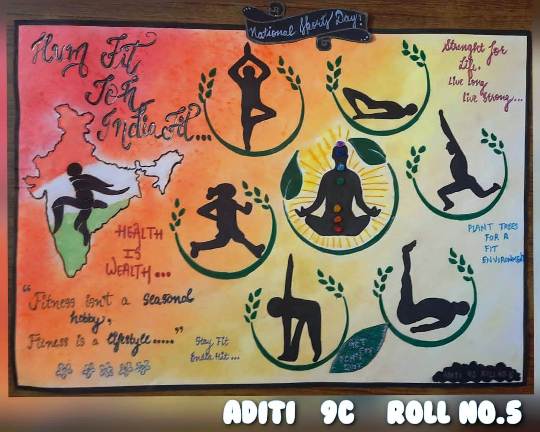 National Sports Day!
Hum Fit
Toh
India Fit...
Strenght for
Life.
Live long
Live Strong...
HEALTH
IS
WEALTH...
PLANT TREES
FOR A
FIT
ENVIRONMENT
"Fitness isn't a seasonal
hobby,
Fitness is a lifestyle....."
Stay Fit
India Hit...
GET
DIRTY
ADITI 9C ROLL NO.5
ADITI 9C ROLL NO.5